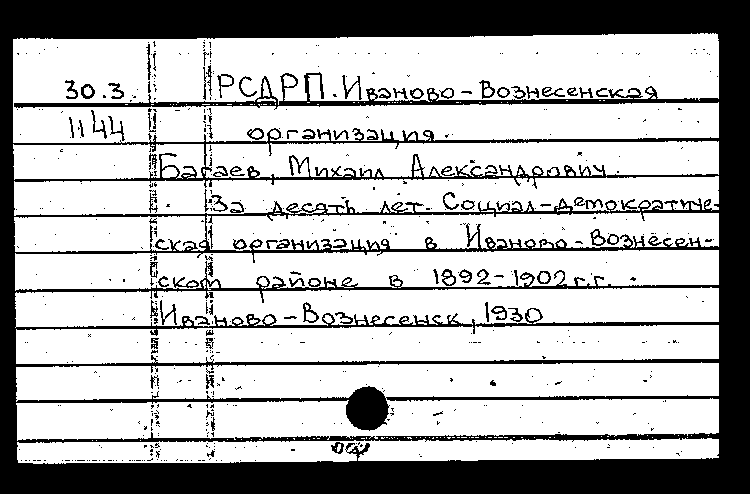 30.3. РСДРП. Иваново-Вознесенская
1144 организация.
Багаев, Михаил Александрович.
За десять лет. Социал-демократиче-
ская организация в Иваново-Вознесен-
ском районе в 1892-1902 г.г.
Иваново-Вознесенск, 1930